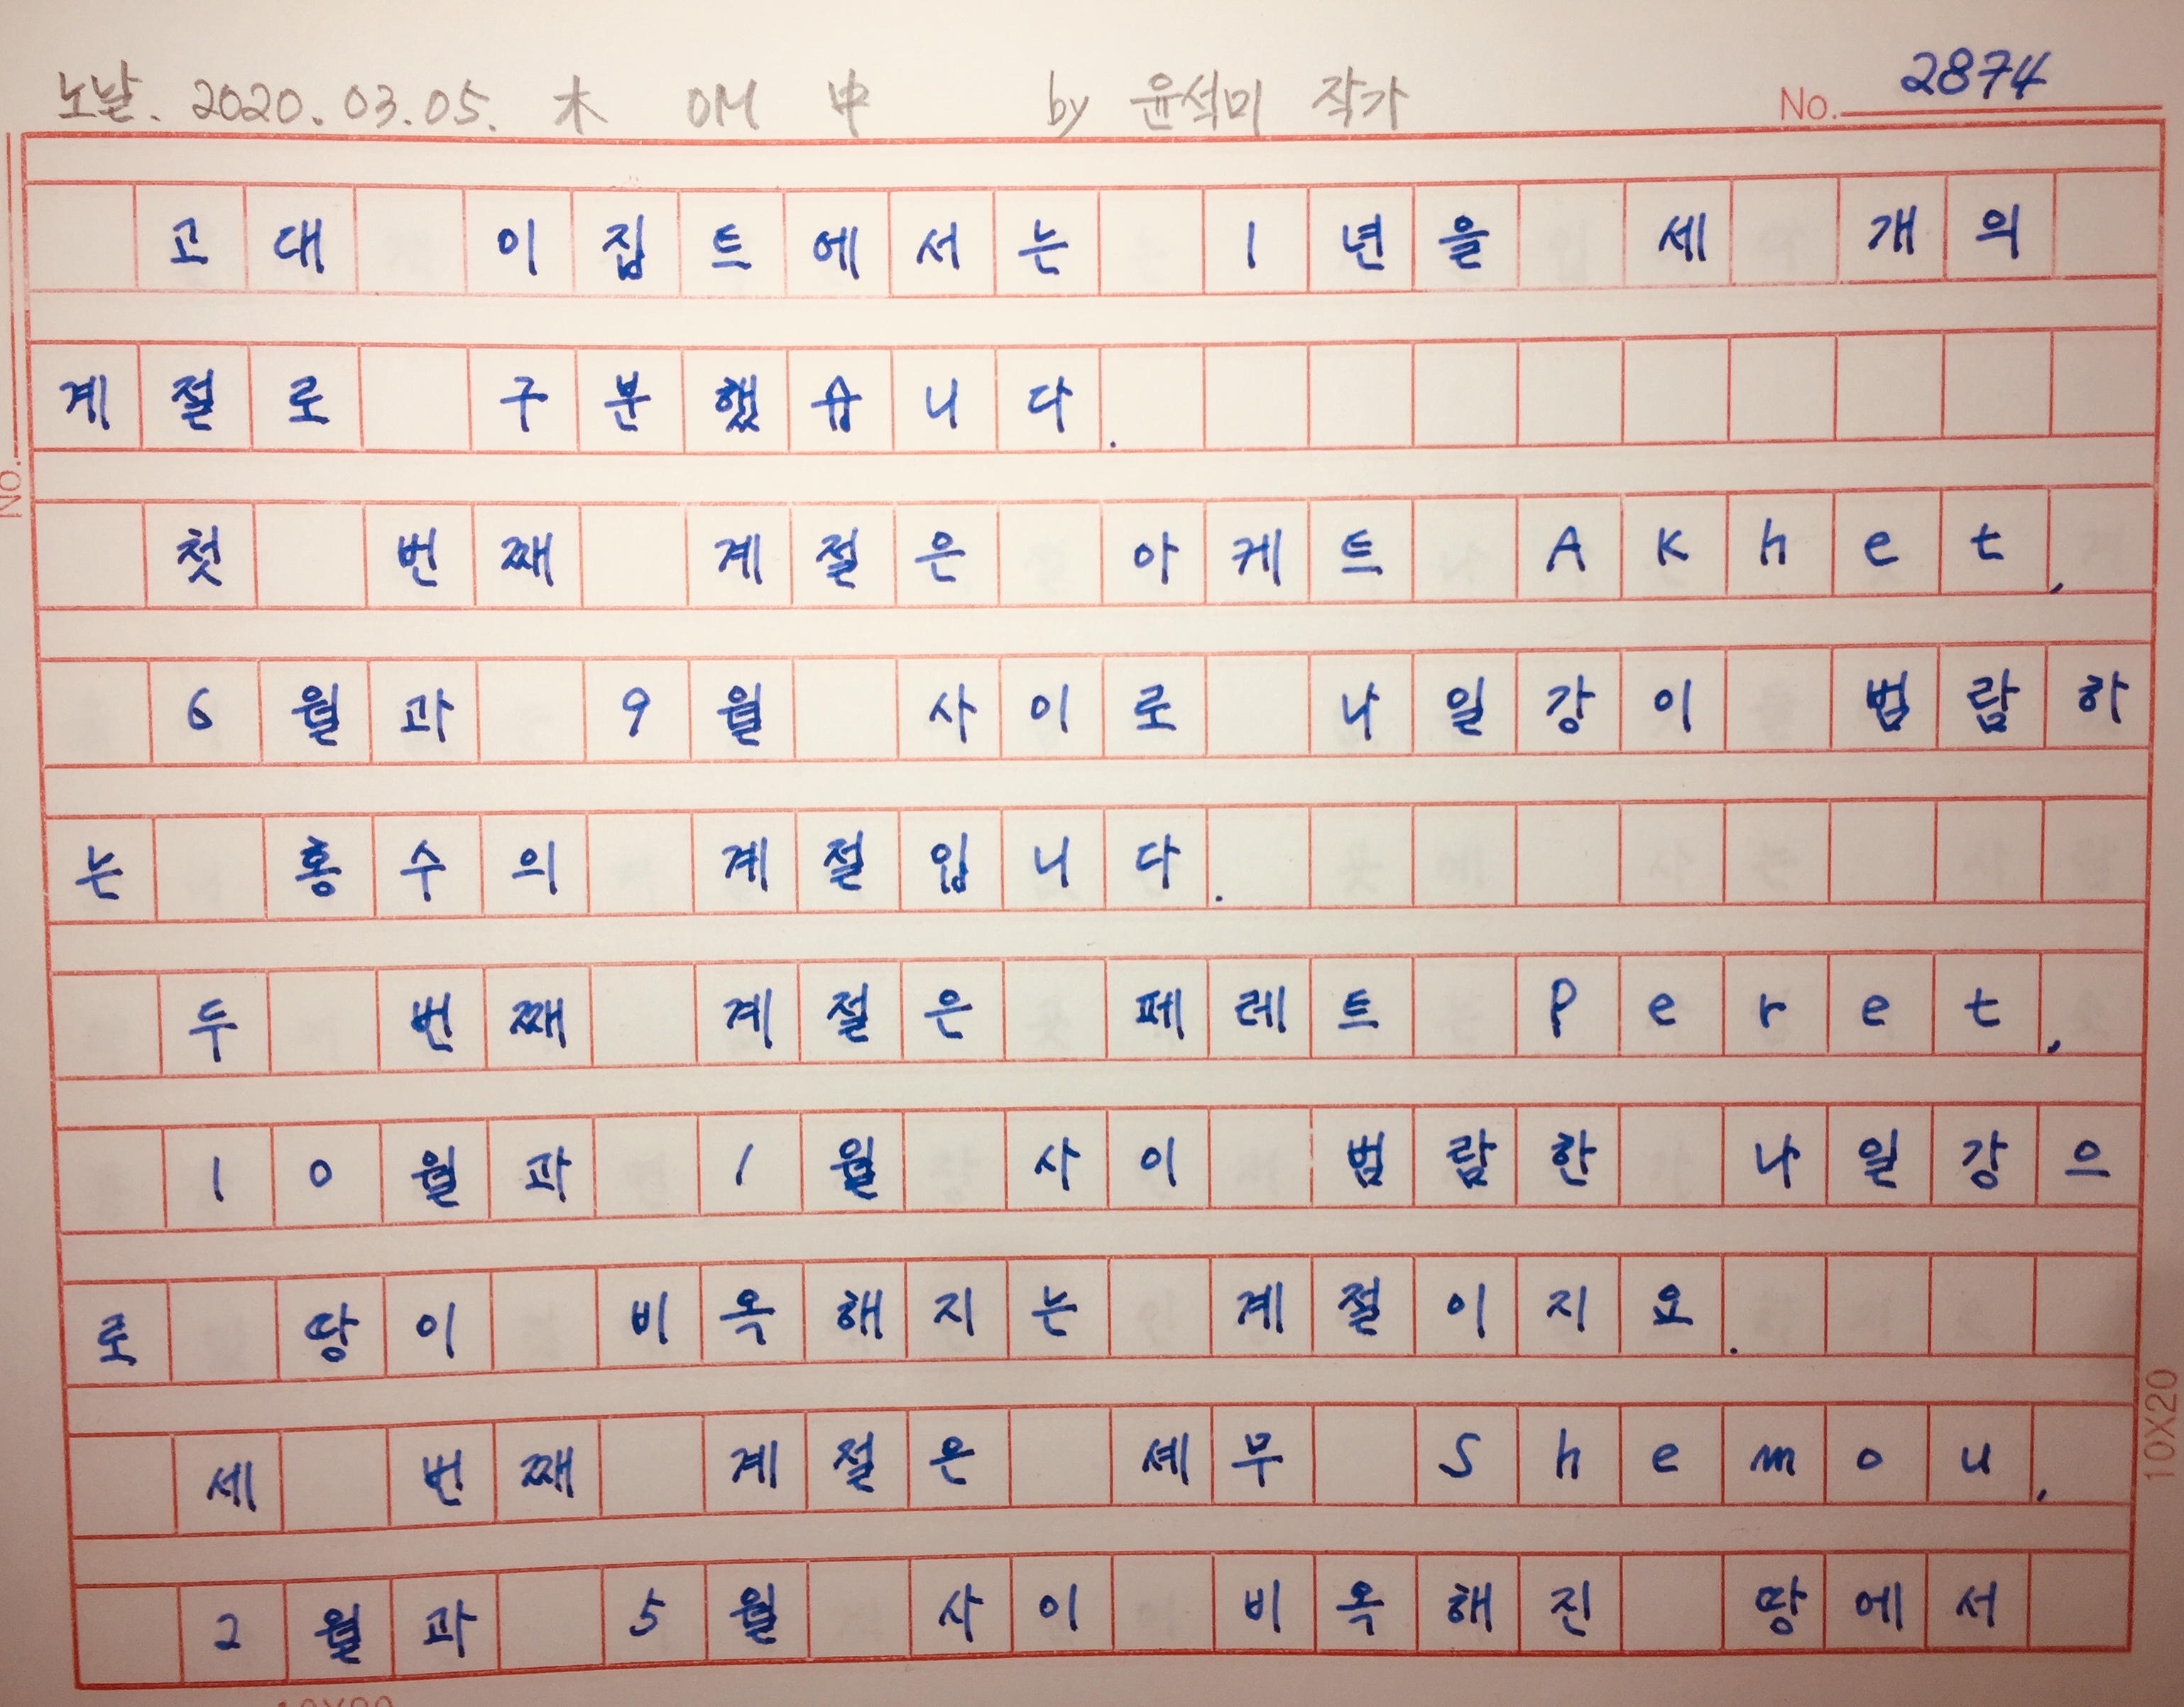 노날. 2020.03.05. 木 OM 中 by 윤석미 작가
No. 2874
고대 이집트에서는 1년을 세 개의
계절로 구분했습니다.
첫 번째 계절은 아케트 Akhet,
6월과 9월 사이로 나일강이 범람하
는 홍수의 계절입니다.
두 번째 계절은 페레트 Peret,
10월과 1월 사이 범람한 나일강으
로 땅이 비옥해지는 계절이지요.
세 번째 계절은 셰무 Shemou,
2월과 5월 사이 비옥해진 땅에서
No.
10X20
10X20